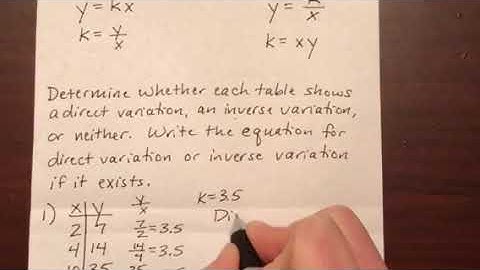 y = kx
y = k/x
k = y/x
k = xy
Determine whether each table shows
a direct variation, an inverse variation,
or neither. Write the equation for
direct variation or inverse variation
if it exists.
1) x y y/x k = 3.5
2 7 7/2 = 3.5 Di
4 14 14/4 = 3.5
10 35